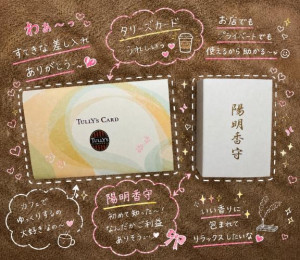 わぁ〜っ
すてきな差し入れ
ありがとう〜
タリーズカード
うれしいよぉ
お店でも
プライベートでも
使えるから助かる〜
TULLY'S CARD
TULLY'S
陽明香守
カフェで
ゆっくりするの
大好きなの
陽明香守
初めて知った
なんだかご利益
ありそう〜
いい香りに
包まれて
リラックスしたいな